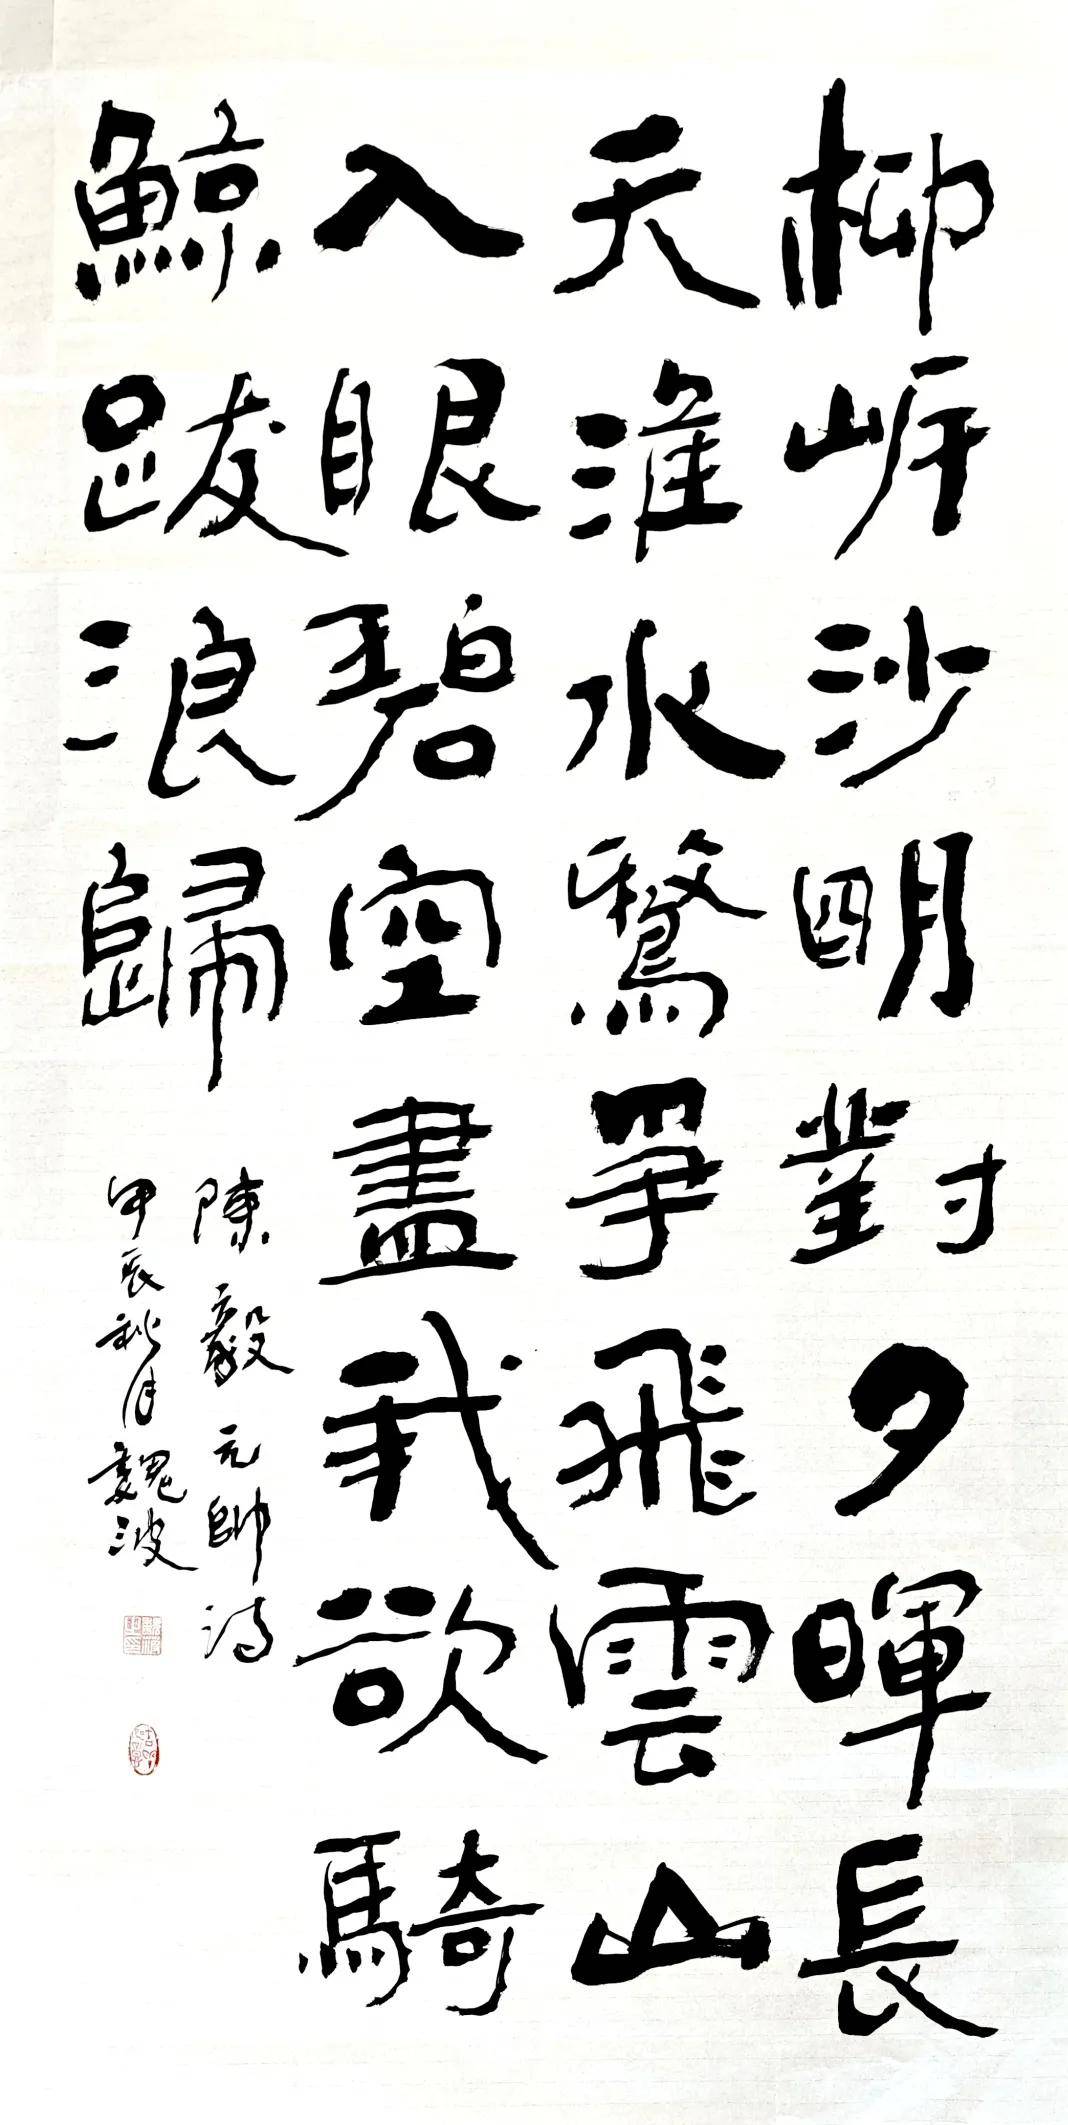 柳岸沙明對夕暉長
天淮水鶩爭飛雲山
入眼碧空盡我欲騎
鯨跋浪歸
陳毅元帥詩
甲辰秋月魏波